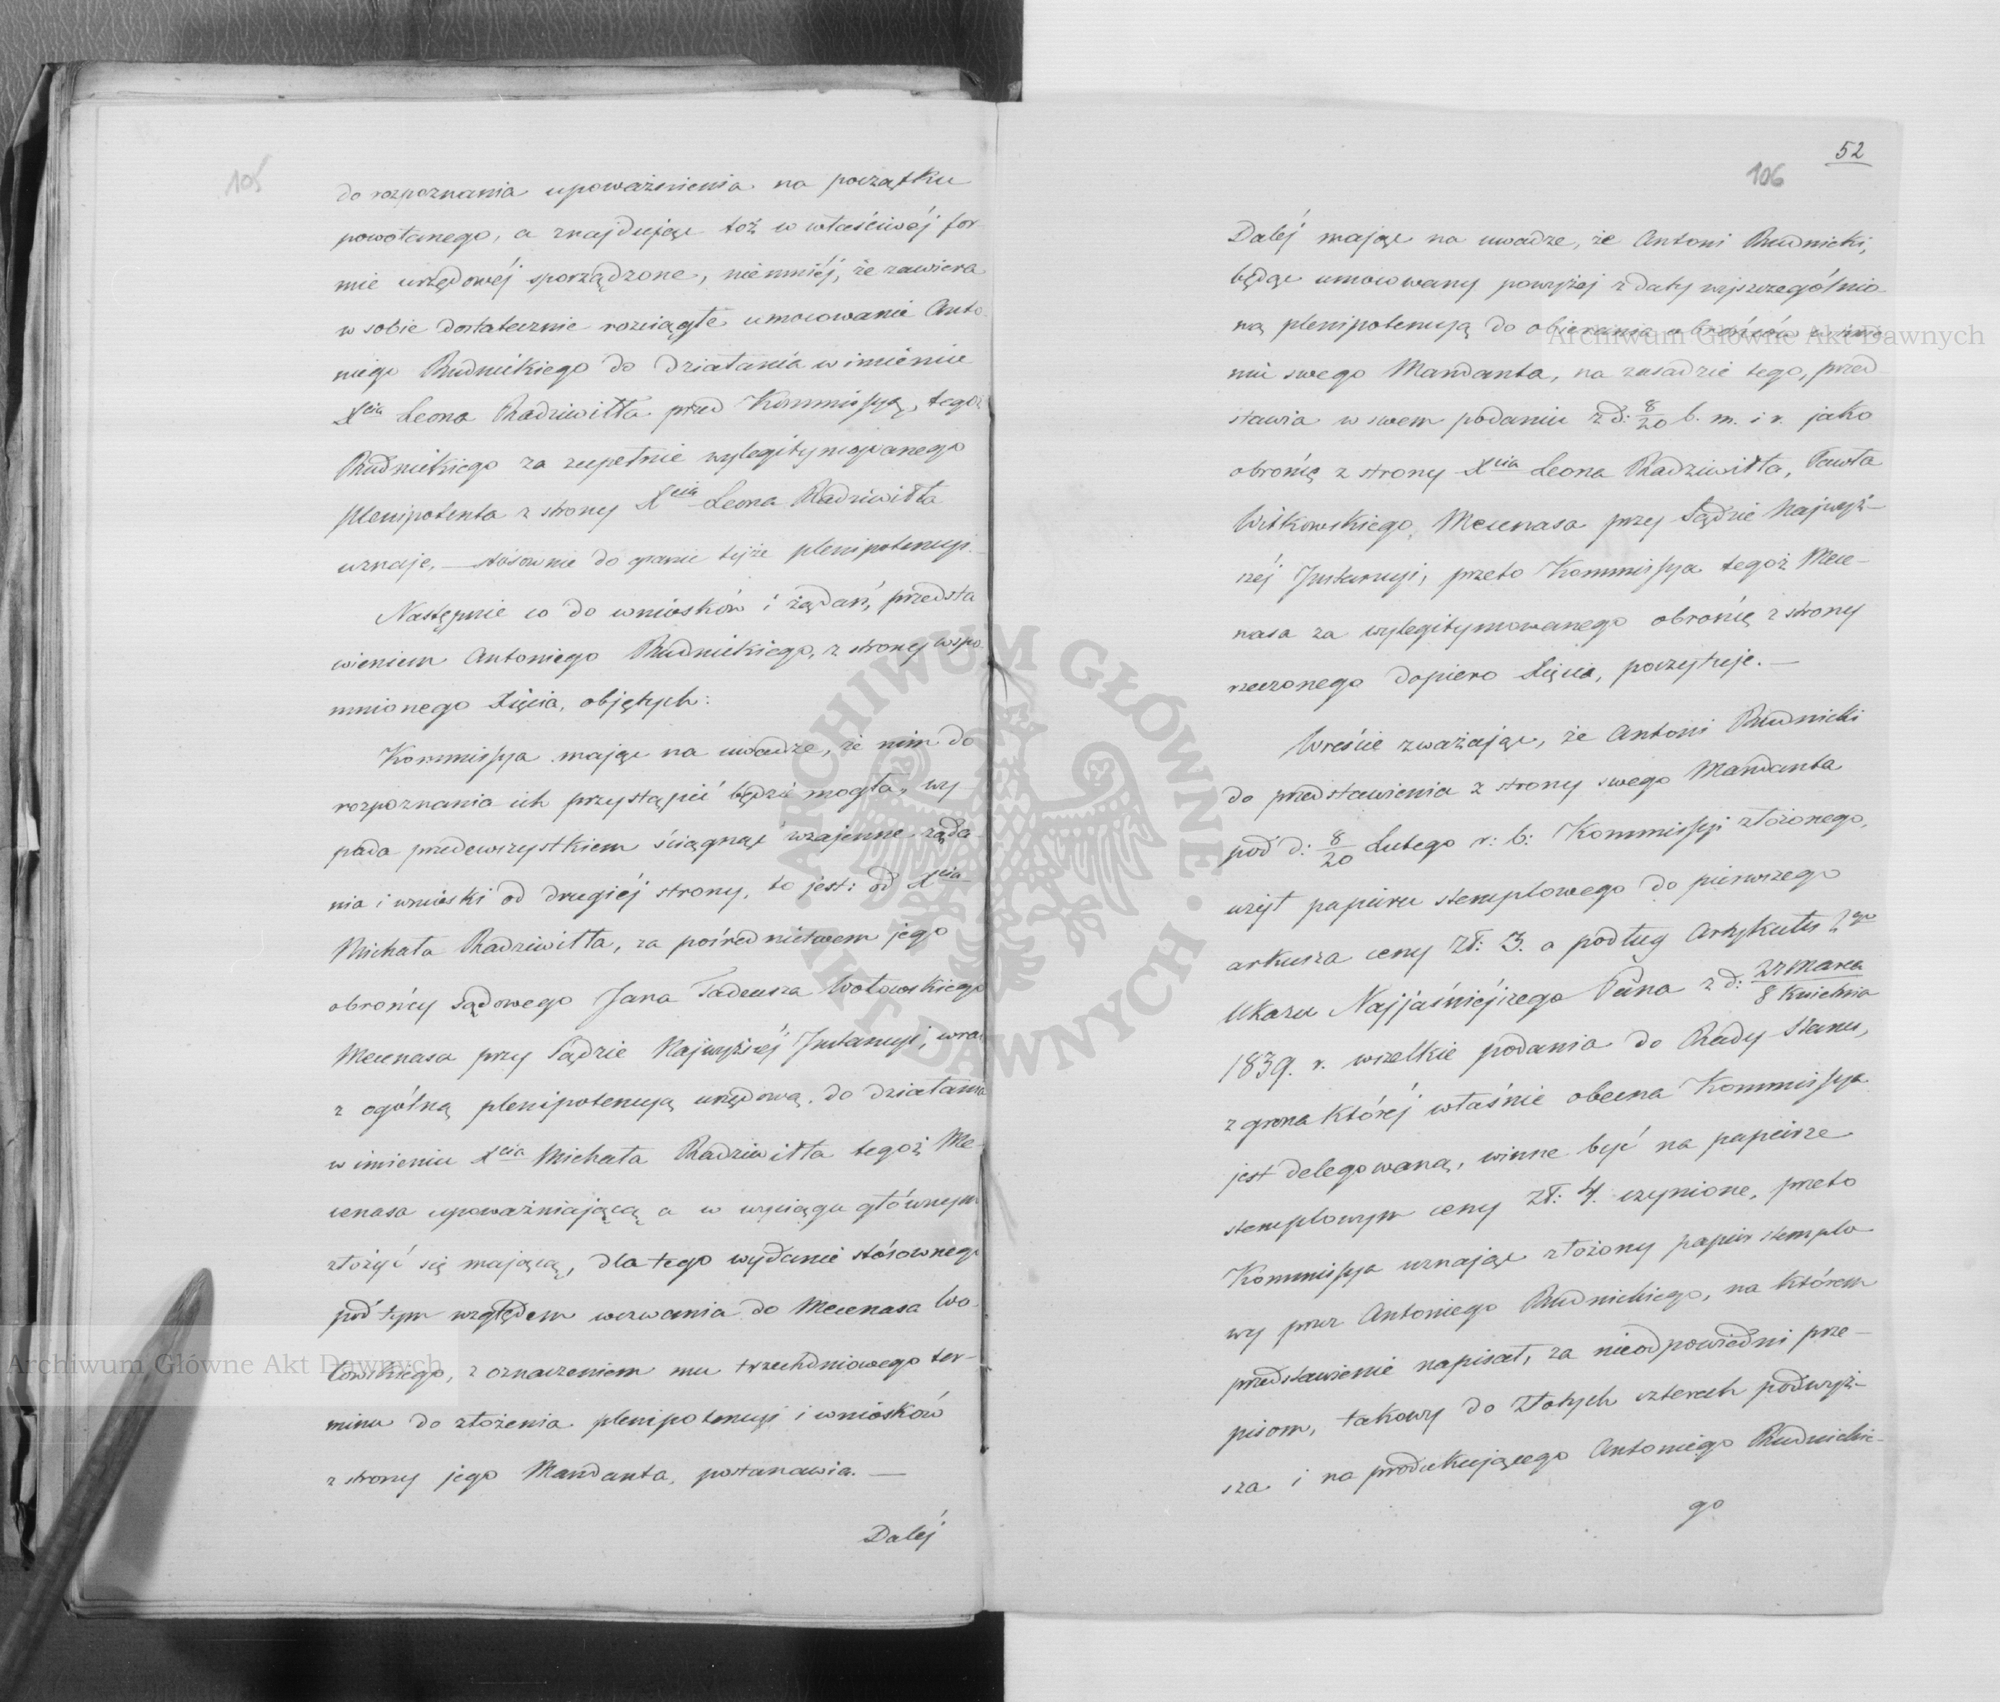 105
do rozpoznania upoważnienia na początku
powołanego, a znajdując toż w właściwéj for-
mie urzędowéj sporządzone, niemniéj, że zawiera
w sobie dostatecznie rozciągłe umocowanie Anto-
niego Rudnickiego do działania w imieniu
Xcia Leona Radziwiłła przed Kommissyą, tegoż
Rudnickiego za zupełnie wylegitymowanego
plenipotenta z strony Xcia Leona Radziwiłła
uznaje, — stósownie do granic tejże plenipotencyi.
Następnie co do wniosków i żądań, przedsta
wieniem Antoniego Rudnickiego, z strony wspo-
mnionego Xięcia, objętych:
Kommissya mając na uwadze, że nim do
rozpoznania ich przystąpić będzie mogła, wy-
pada przedewszystkiem ściągnąć wzajemne żąda-
nia i wnioski od drugiéj strony, to jest: od Xcia
Michała Radziwiłła, za pośrednictwem jego
obrońcy sądowego Jana Tadeusza Wołowskiego
Mecenasa przy Sądzie Najwyższéj Instancyi, wraz
z ogólną plenipotencyą urzędową, do działania
w imieniu Xcia Michała Radziwiłła tegoż Me-
cenasa upoważniającą a w wyciągu głównym
złożyć się mającą, dla tego wydanie stósownego
pod tym względem wezwania do Mecenasa Wo-
łowskiego, z oznaczeniem mu trzechdniowego ter-
minu do złożenia plenipotencyi i wniosków
z strony jego Mandanta, postanawia. —
Daléj
52
106
Daléj mając na uwadze, że Antoni Rudnicki,
będąc umocowany powyżej z daty wyszczególnio
ną plenipotencyą do obierania obrońców w imie
niu swego Mandanta, na zasadzie tego, przed-
stawia w swem podaniu z d: 8/20 b. m. i r. jako
obrońcę z strony Xcia Leona Radziwiłła, Pawła
Witkowskiego, Mecenasa przy Sądzie Najwyż-
széj Instancyi, przeto Kommissya tegoż Mece-
nasa za wylegitymowanego obrońcę z strony
rzeczonego dopiero Xięcia, poczytuje. —
Wreście zważając, że Antoni Rudnicki
do przedstawienia z strony swego Mandanta
pod d: 8/20 Lutego r: b: Kommissyi złożonego,
użył papieru stemplowego do pierwszego
arkusza ceny Zł: 3. a podług Artykułu 7go
Ukazu Najjaśniejszego Pana z d: 27 Marca/8 Kwietnia
1839. r. wszelkie podania do Rady Stanu,
z grona któréj właśnie obecna Kommissya
jest delegowaną, winne być na papierze
stemplowym ceny Zł: 4. czynione, przeto
Kommissya uznając złożony papier stemplo
wy przez Antoniego Rudnickiego, na którem
przedstawienie napisał, za nieodpowiedni prze-
pisom, takowy do Złotych czterech podwyż-
sza i na produkującego Antoniego Rudnickie-
go
Archiwum Główne Akt Dawnych
Archiwum Główne Akt Dawnych
ARCHIWUM GŁÓWNE AKT DAWNYCH